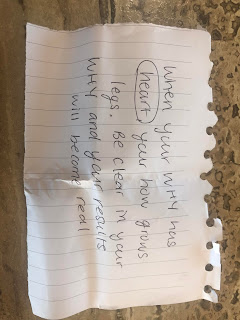 When your WHY has
heart your how grows
legs. Be clear in your
WHY and your results
will become real